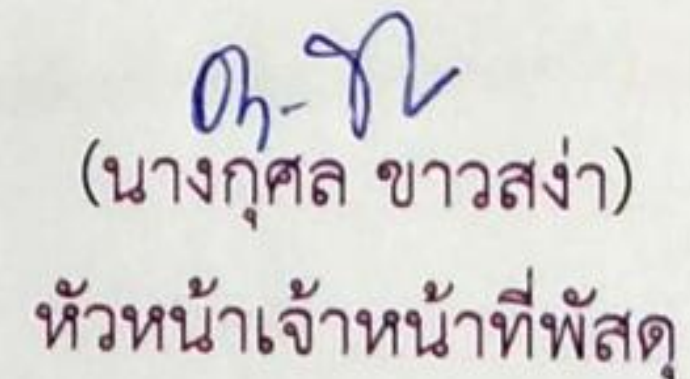 (นางกุศล ขาวสง่า)
หัวหน้าเจ้าหน้าที่พัสดุ